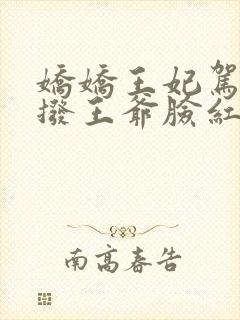 嬌嬌王妃駕
撥王爺臉紅
南高春告